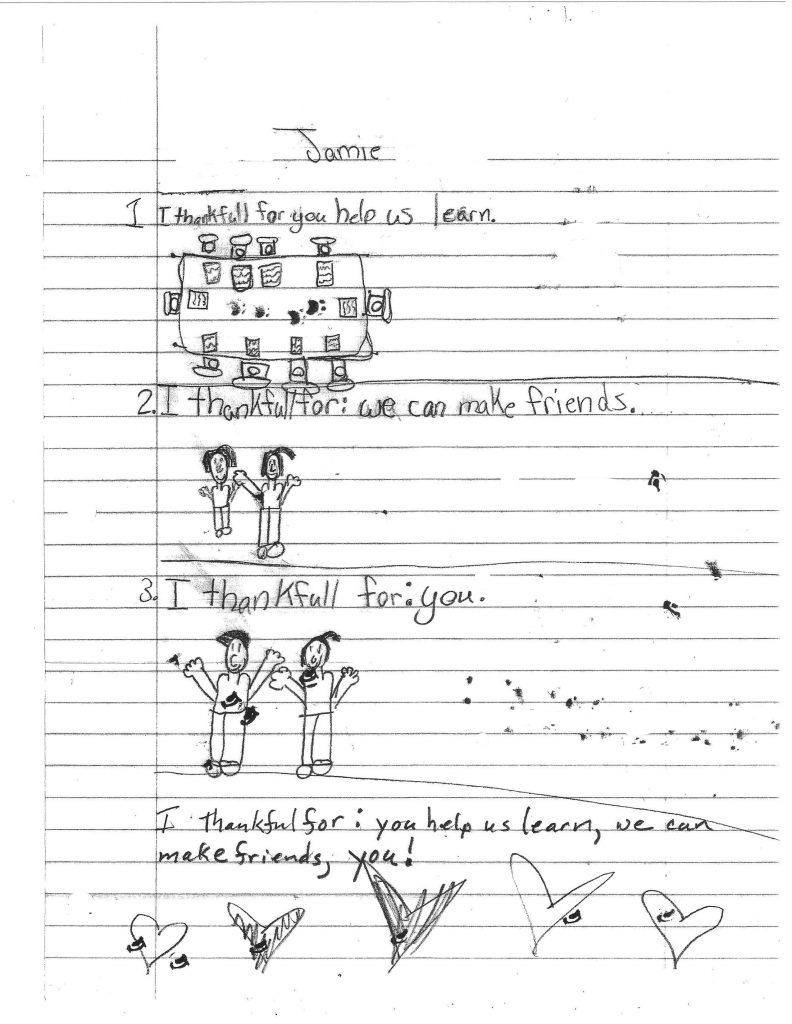 Jamie
1 I thankfull for you help us learn.
2. I thankfull for: we can make friends.
3. I thankfull for: you.
I thankful for: you help us learn, we can
make friends, you!